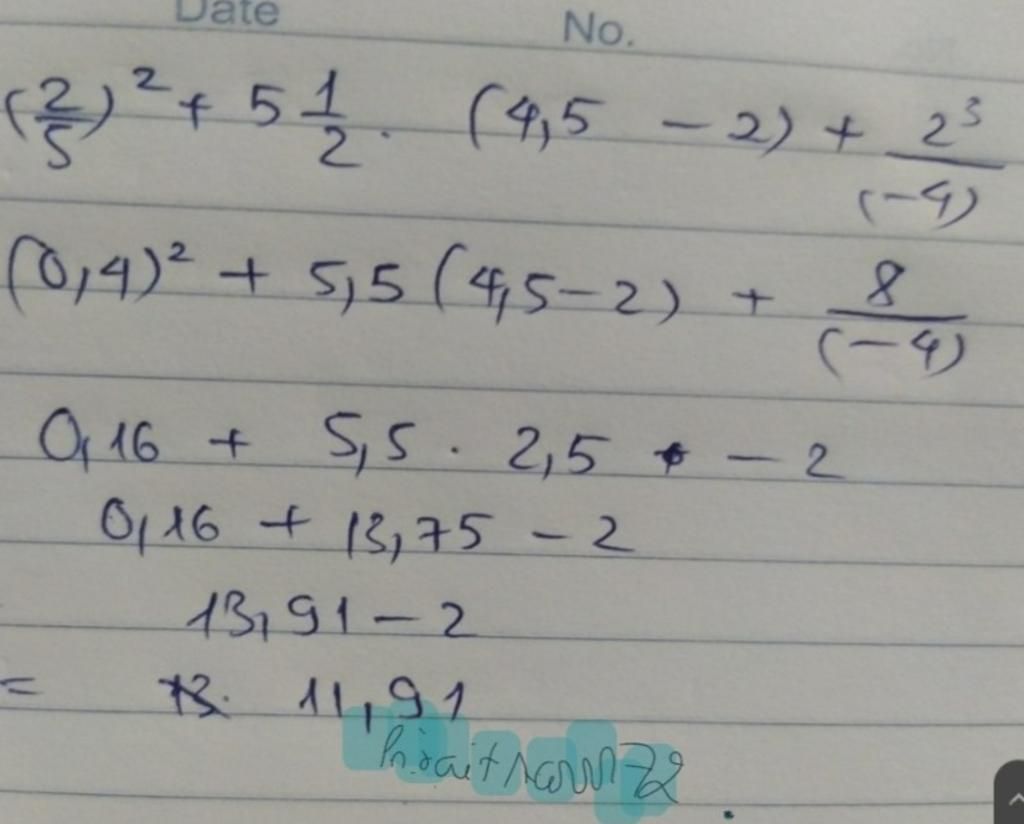 Date No.
(2/5)² + 5 1/2 . (4,5 - 2) + 2³/(-4)
(0,4)² + 5,5 (4,5-2) + 8/(-4)
0,16 + 5,5 . 2,5 - 2
0,16 + 13,75 - 2
13,91 - 2
= 11,91